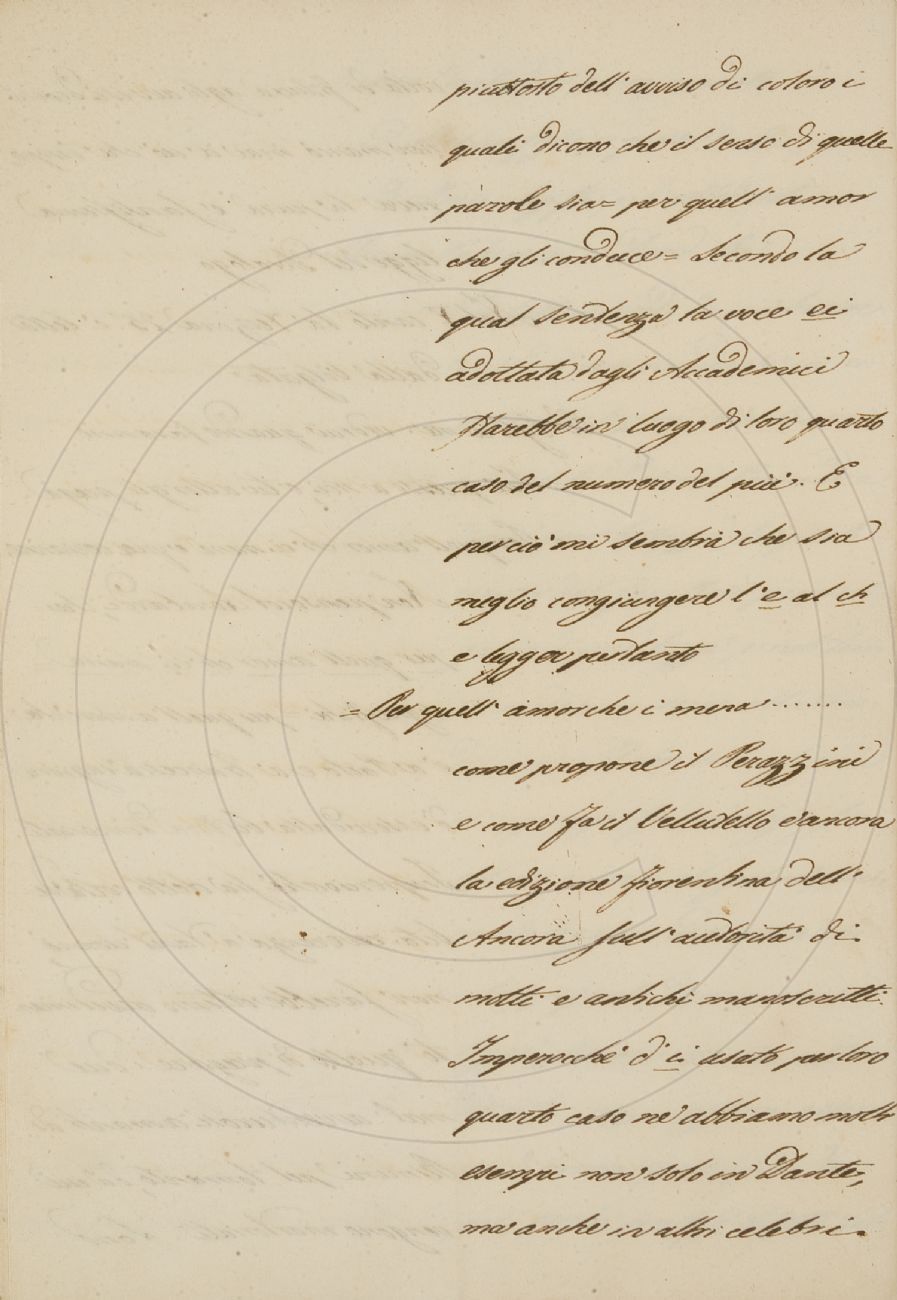 piuttosto dell' avviso di coloro i
quali dicono che il senso di quelle
parole sia= per quell' amor
che gli conduce= Secondo la
qual sentenza la voce ei
adottata dagli Accademici
starebbe in luogo di loro quarto
caso del numero del più. E
perciò mi sembra che sia
meglio congiungere l'e al ch
e legger pertanto
= Per quell' amor che i mena.......
come propone il Perazzini
e come fa il Vellutello e ancora
la edizione fiorentina dell'
Ancora sull' autorità di
molti e antichi manoscritti.
Imperocchè d' i usato per loro
quarto caso ne abbiamo molti
esempi non solo in Dante,
ma anche in altri celebri